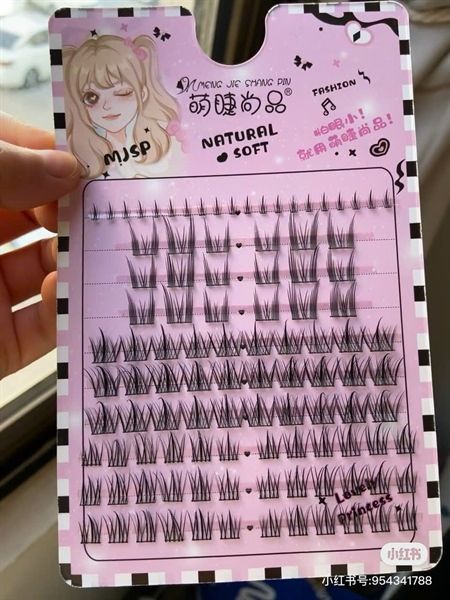 MENG JIE SHANG PIN
萌睫尚品®
FASHION
MJSP
NATURAL
SOFT
怕眼小!
就用萌睫尚品!
Lovely
princess
小红书
小红书号:954341788